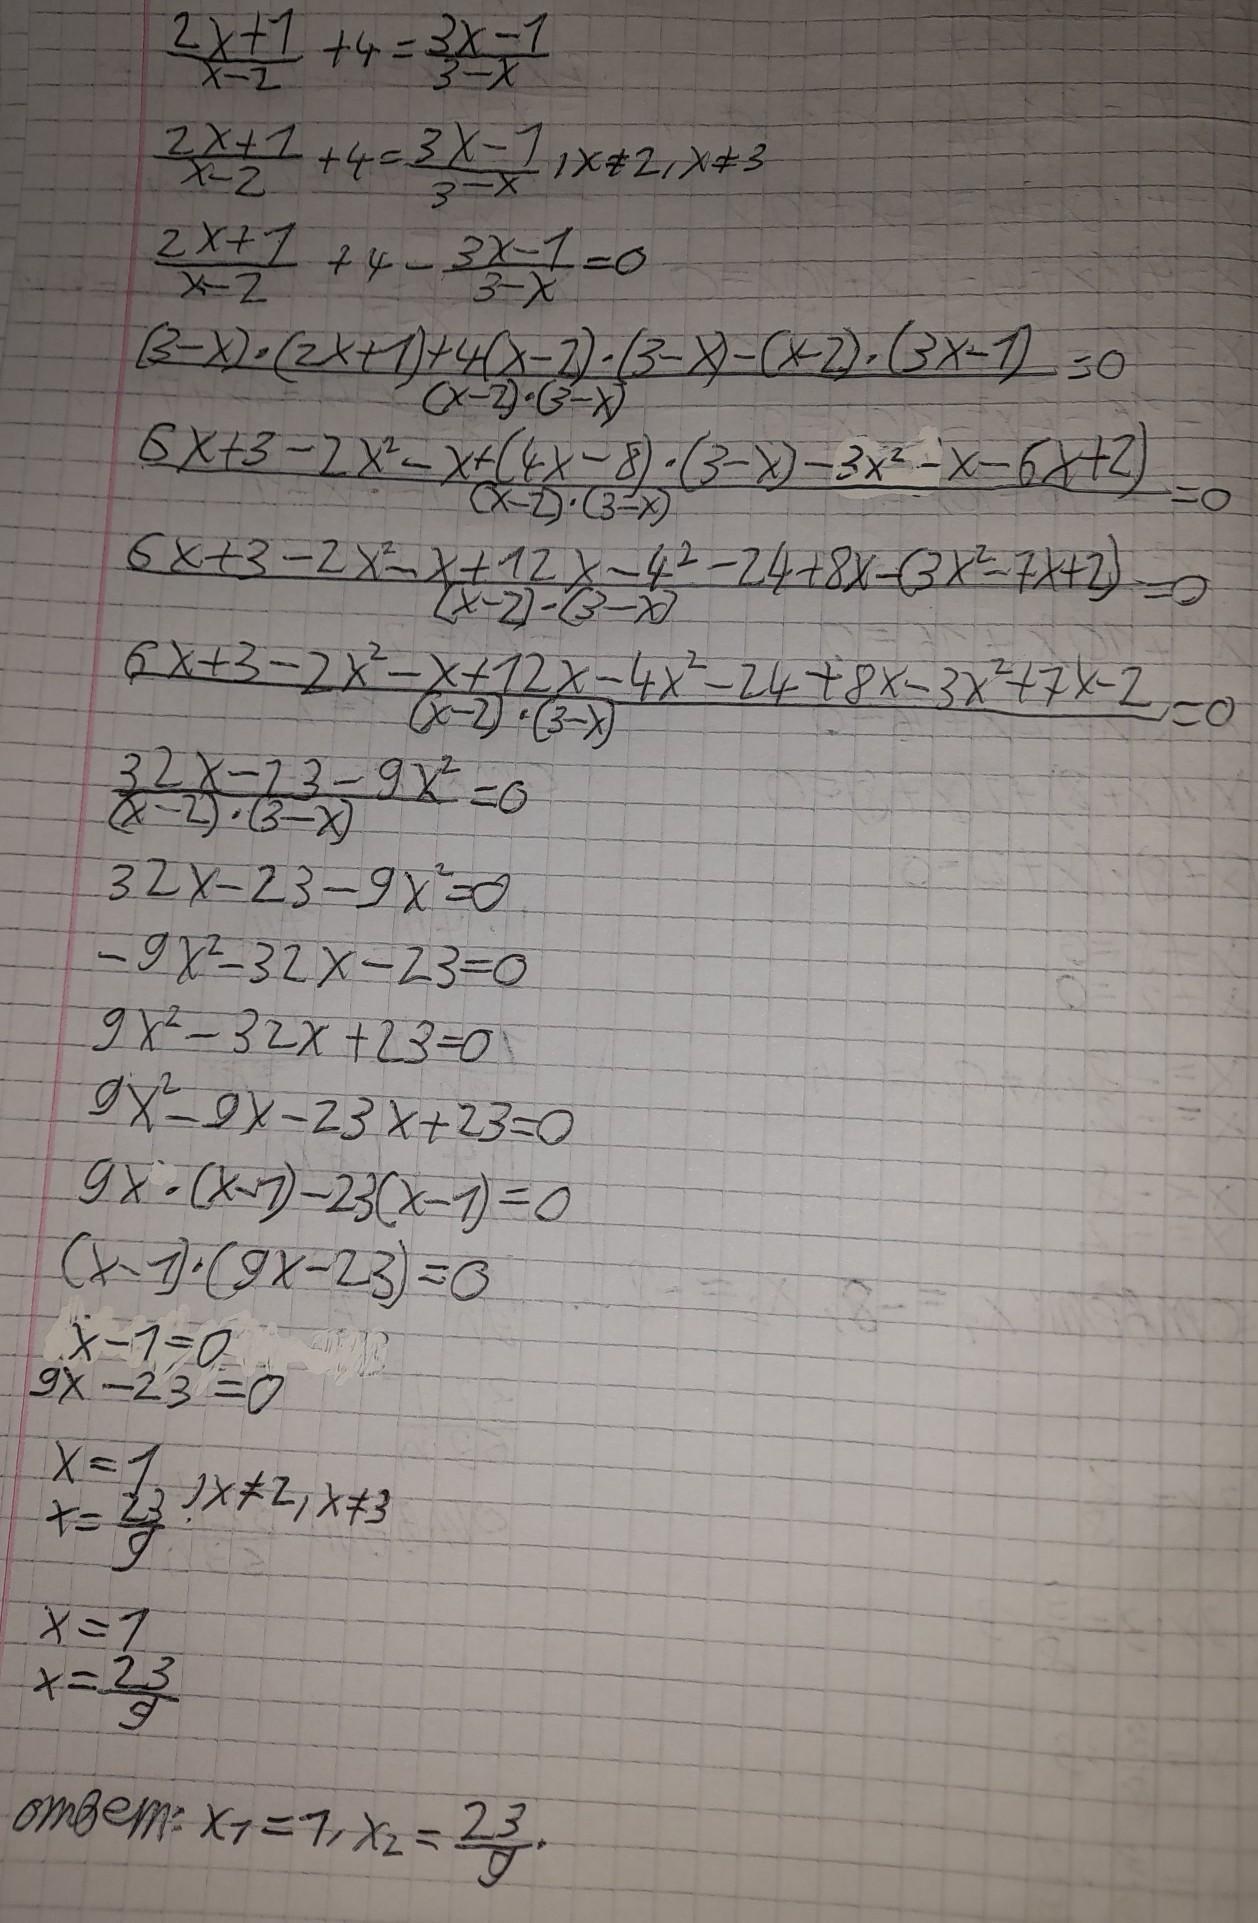 (2x+1)/(x-2) +4 = (3x-1)/(3-x)
(2x+1)/(x-2) +4 = (3x-1)/(3-x) , x≠2, x≠3
(2x+1)/(x-2) +4 - (3x-1)/(3-x) = 0
((3-x)·(2x+1)+4(x-2)·(3-x)-(x-2)·(3x-1))/((x-2)·(3-x)) = 0
(6x+3-2x²-x+(4x-8)·(3-x)-3x²-x-6x+2))/((x-2)·(3-x)) = 0
(6x+3-2x²-x+12x-4²-24+8x-(3x²-7x+2))/((x-2)·(3-x)) = 0
(6x+3-2x²-x+12x-4x²-24+8x-3x²+7x-2)/((x-2)·(3-x)) = 0
(32x-23-9x²)/((x-2)·(3-x)) = 0
32x-23-9x²=0
-9x²-32x-23=0
9x²-32x+23=0
9x²-9x-23x+23=0
9x·(x-1)-23(x-1)=0
(x-1)·(9x-23)=0
x-1=0
9x-23=0
x=1
x=23/9 , x≠2, x≠3
x=1
x=23/9
ответ: x₁=1, x₂=23/9.